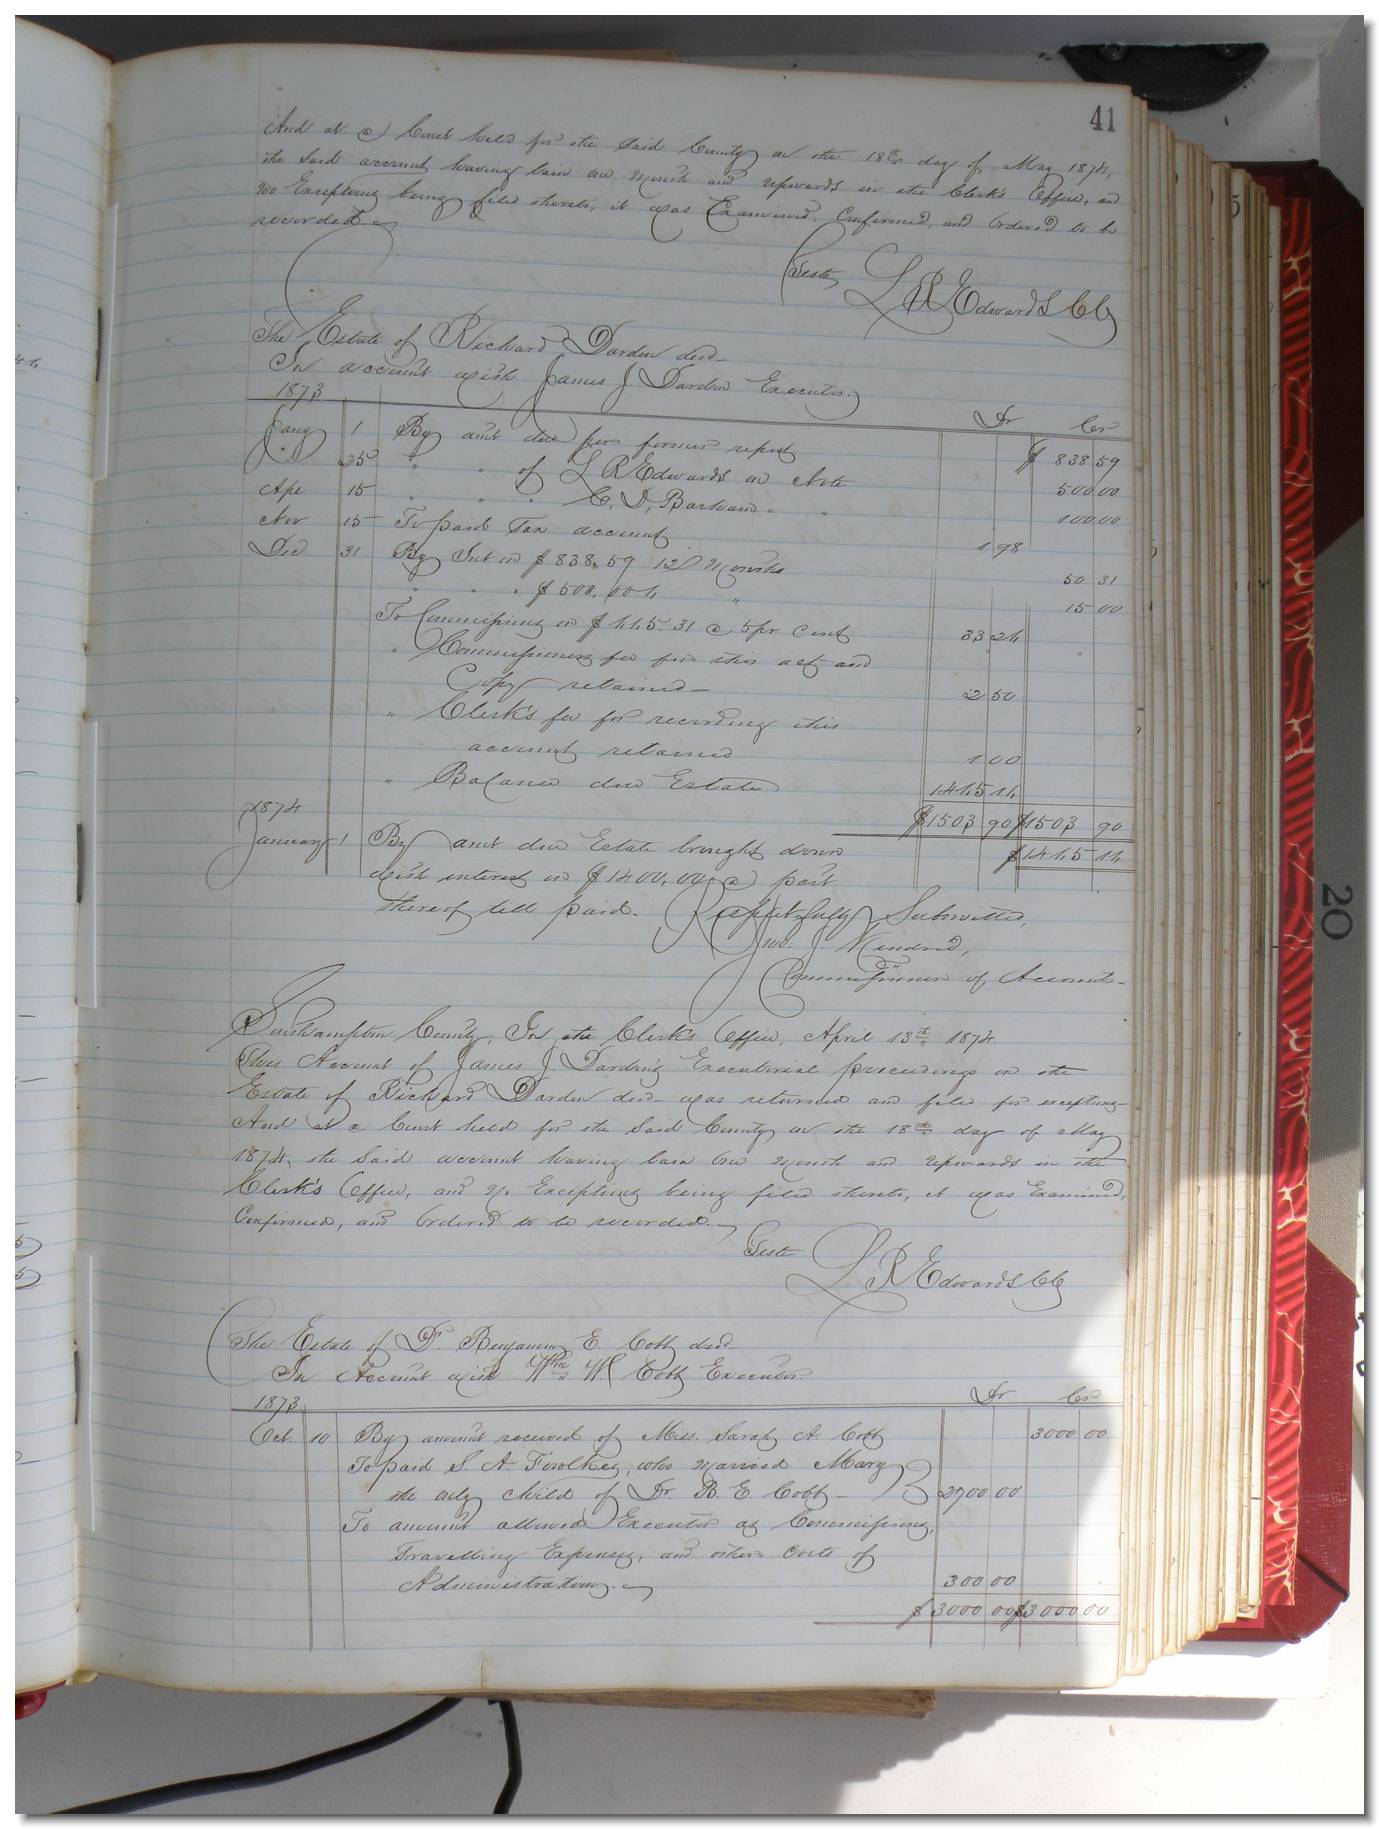 41
And at a Court held for the Said County on the 18th day of May 1874,
the Said account having lain one Month and upwards in the Clerk's Office, and
no Exceptions being filed thereto, it was Examined, Confirmed, and Ordered to be
recorded.
Teste L R Edwards CC
The Estate of Richard Darden decd
In account with James J. Darden Executor.
1873
Dr Cr
Jany 1 By amt due per former report $ 838 59
" 25 " " of L R Edwards on Note 500 00
Apl 15 " " " C. D. Barham " " 100 00
Nov 15 To paid Tax account 1 98
Dec 31 By Int on $838.59 12 Months 50 31
" " " $500.00 " 15 00
To Commissions on $ 665.31 @ 5 pr cent 33 26
" Commissioners fee for this act and
Copy retained 2 50
" Clerk's fee for recording this
account retained 1 00
" Balance due Estate 1465 16
$1503 90 $1503 90
1874
January 1 By amt due Estate brought down $1465 16
with interest on $1400.00 a part
thereof till paid. Respectfully Submitted,
Jno. J. Kindred,
Commissioner of Accounts
Southampton County, In the Clerk's Office, April 13th 1874.
This Account of James J. Darden's Executorial proceedings on the
Estate of Richard Darden decd was returned and filed for exceptions
And at a Court held for the Said County on the 18th day of May
1874, the Said account having lain One Month and upwards in the
Clerk's Office, and No Exceptions being filed thereto, it was Examined,
Confirmed, and Ordered to be recorded.
Teste L R Edwards CC
The Estate of Dr. Benjamin E. Cobb decd
In Account with Wm W. Cobb Executor
1873 Dr Cr
Oct. 10 By amount received of Miss. Sarah A. Cobb 3000 00
To paid S. A. , who married Mary
the only child of Dr. B. E. Cobb 2700 00
To amount allowed Executor as Commissions,
Travelling Expenses, and other Costs of
Administration. 300 00
$3000 00 $3000 00
20